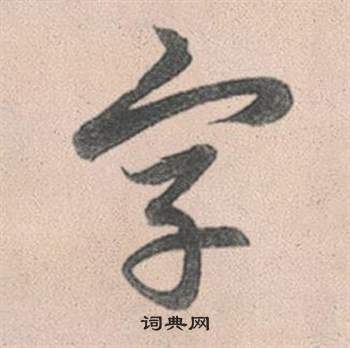 字
词典网